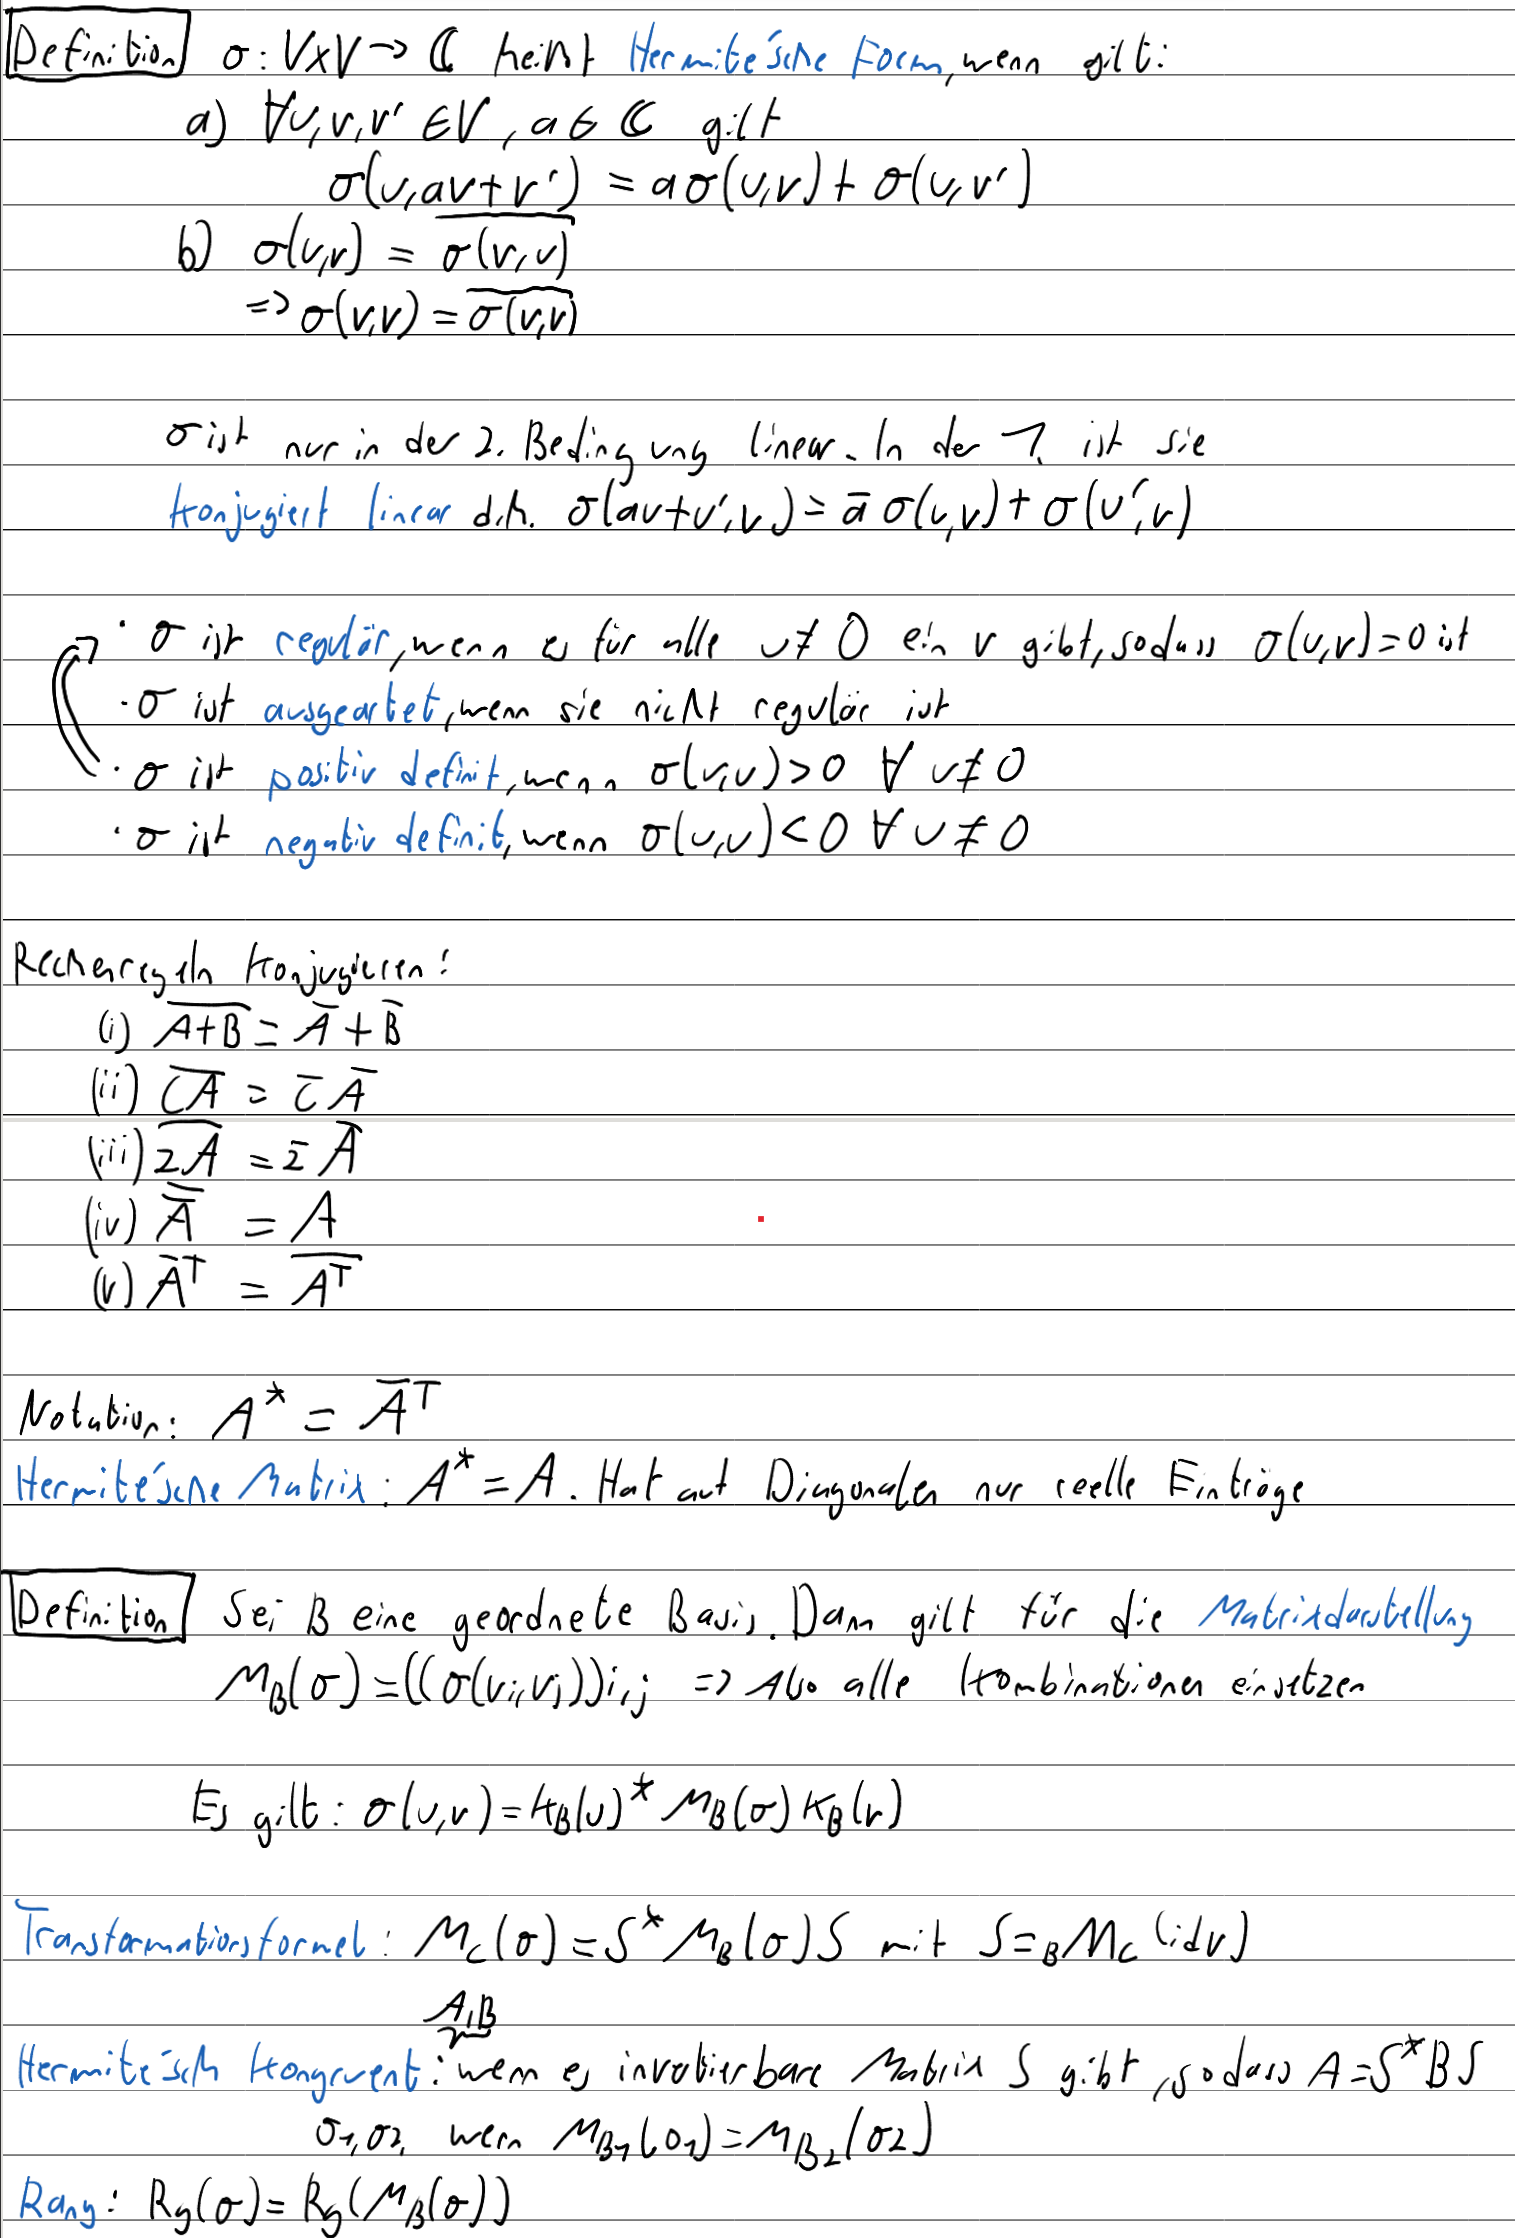 Definition σ: V×V → ℂ heißt Hermite'sche Form, wenn gilt:
a) ∀u,v,v' ∈ V, a ∈ ℂ gilt
σ(u,av+v') = aσ(u,v) + σ(u,v')
b) σ(u,v) = \overline{σ(v,u)}
=> σ(v,v) = \overline{σ(v,v)}
σ ist nur in der 2. Bedingung linear. In der 1. ist sie
konjugiert linear d.h. σ(au+u',v) = \overline{a} σ(u,v) + σ(u',v)
· σ ist regulär, wenn es für alle u ≠ 0 ein v gibt, sodass σ(u,v) = 0 ist
· σ ist ausgeartet, wenn sie nicht regulär ist
· σ ist positiv definit, wenn σ(u,u) > 0 ∀ u ≠ 0
· σ ist negativ definit, wenn σ(u,u) < 0 ∀ u ≠ 0
Rechenregeln Konjugieren:
(i) \overline{A+B} = \overline{A} + \overline{B}
(ii) \overline{CA} = \overline{C} \overline{A}
(iii) \overline{zA} = \overline{z} \overline{A}
(iv) \overline{\overline{A}} = A
(v) \overline{A}^T = \overline{A^T}
Notation: A* = \overline{A}^T
Hermite'sche Matrix: A* = A. Hat auf Diagonalen nur reelle Einträge
Definition Sei B eine geordnete Basis. Dann gilt für die Matrixdarstellung
M_B(σ) = ((σ(v_i,v_j))i,j => Also alle Kombinationen einsetzen
Es gilt: σ(u,v) = K_B(u)* M_B(σ) K_B(v)
Transformationsformel: M_C(σ) = S* M_B(σ) S mit S = _B M_C (id_V)
A,B
Hermite'sch Kongruent: wenn es invertierbare Matrix S gibt, sodass A = S*BS
σ1,σ2, wenn M_B1(σ1) = M_B2(σ2)
Rang: Rg(σ) = Rg(M_B(σ))